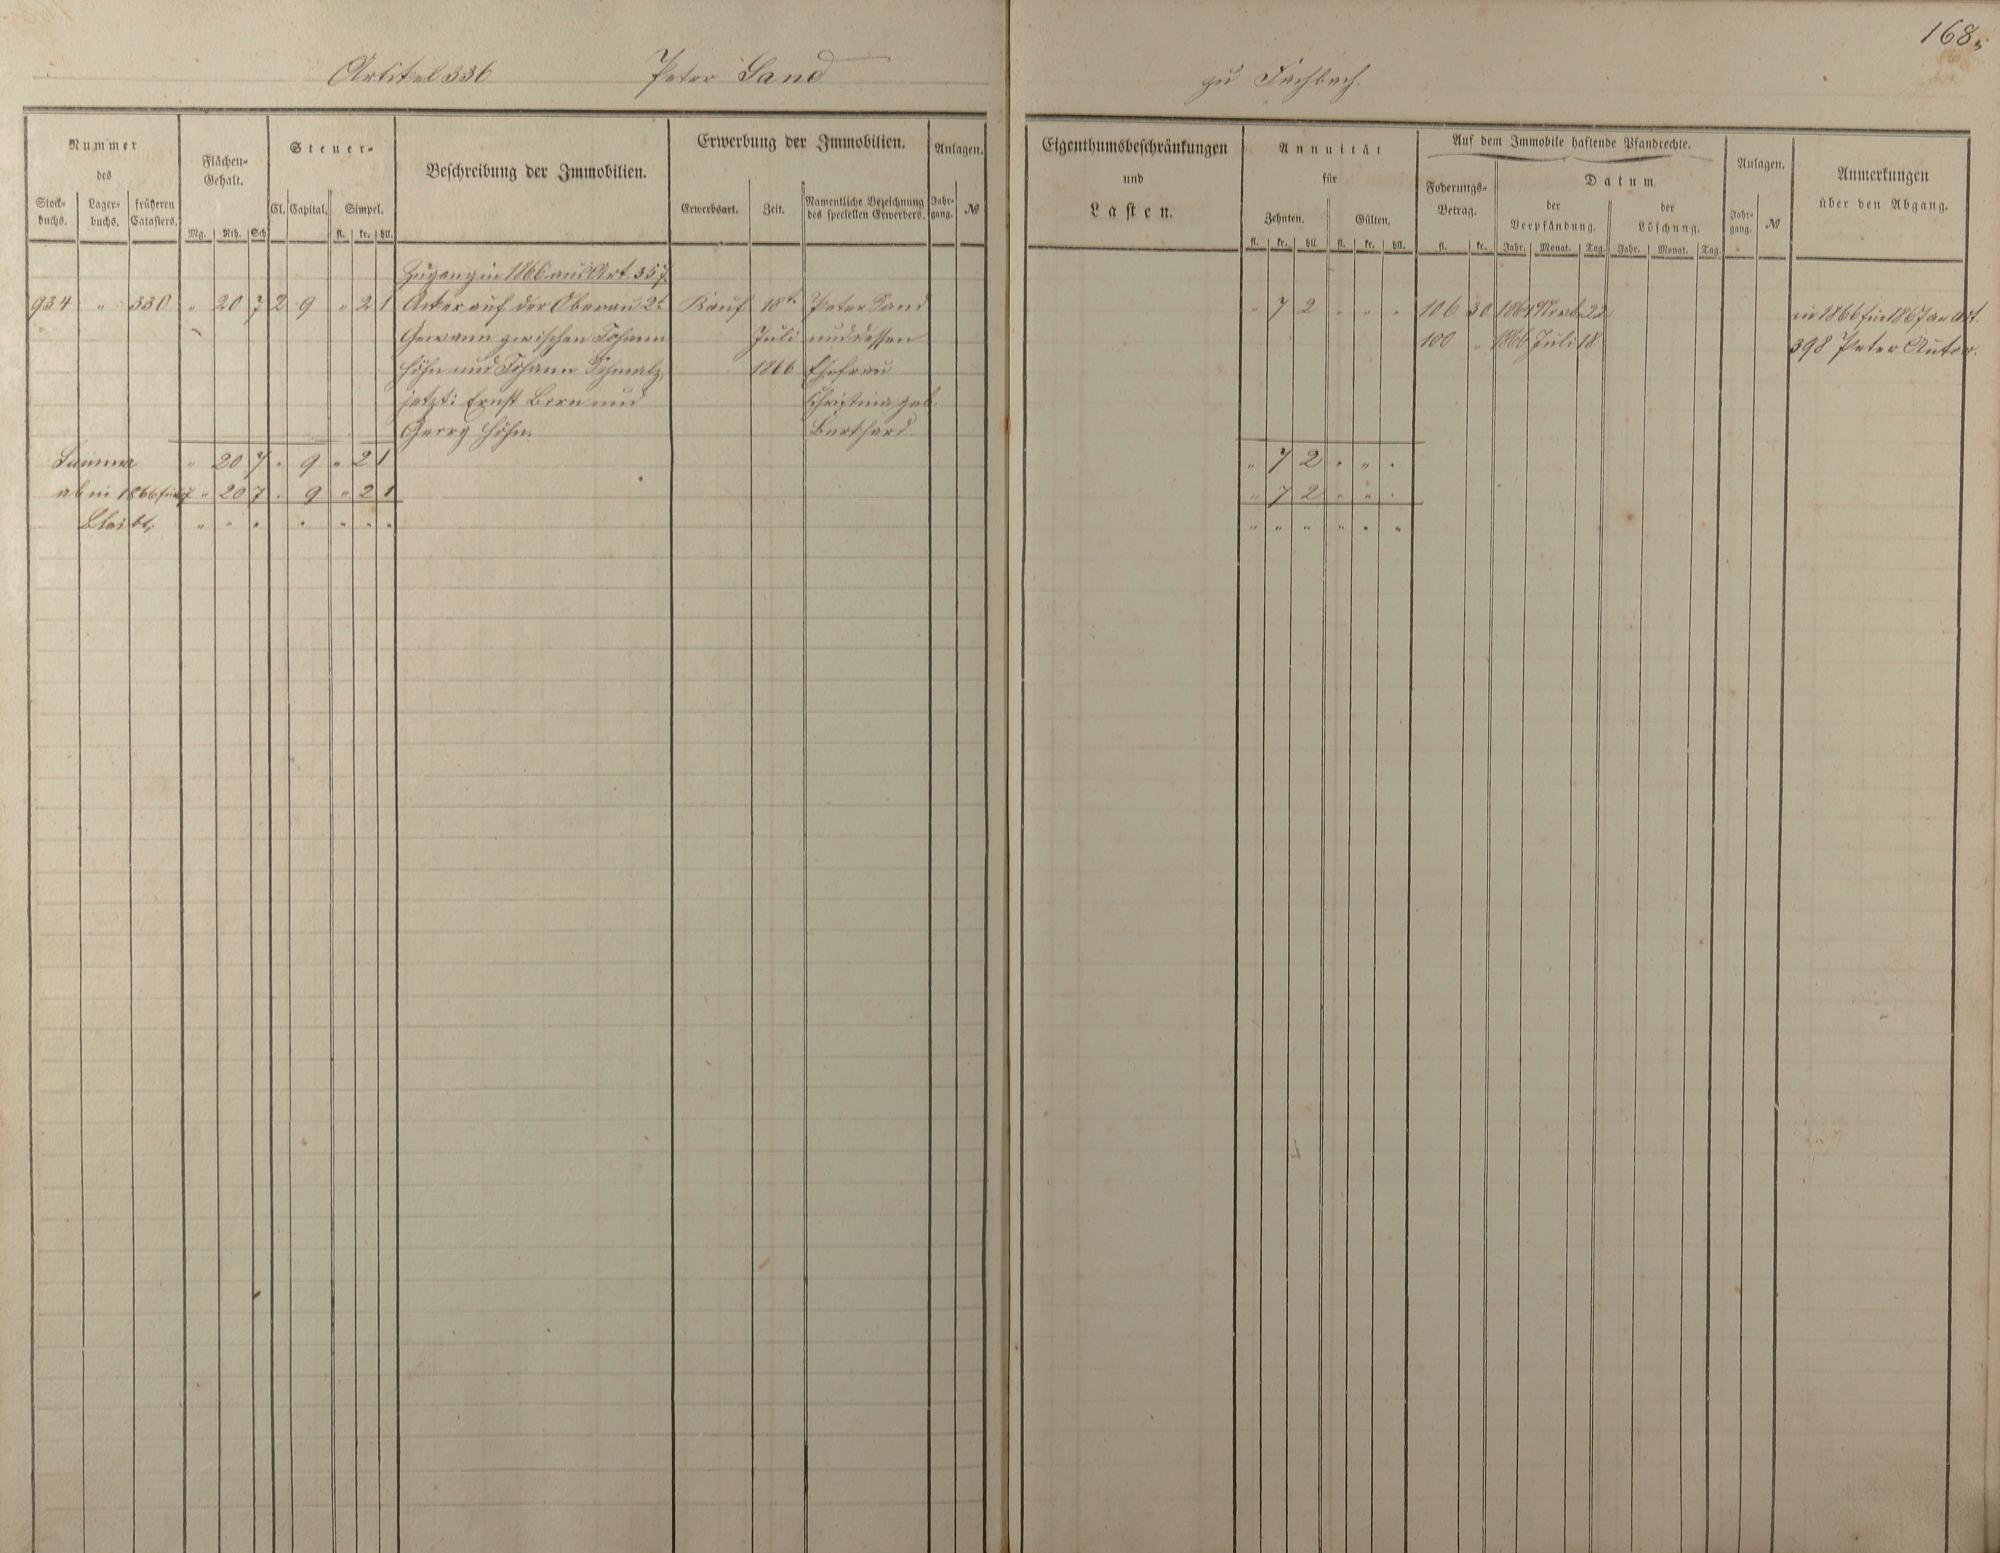 168.
Artikel 336 Peter Sand zu Fachbach.
Nummer
des
Stock-
buchs.
Lager-
buchs.
früheren
Catasters.
Flächen-
Gehalt.
Mg. Rth. Sch
Steuer-
Cl. Capital. Simpel.
fl. kr. hll.
Beschreibung der Immobilien.
Erwerbung der Immobilien.
Erwerbsart. Zeit. Namentliche Bezeichnung
des speciellen Erwerbers.
Anlagen.
Jahr-
gang. №
Eigenthumsbeschränkungen
und
Lasten.
Annuität
für
Zehnten. Gülten.
fl. kr. hll. fl. kr. hll.
Auf dem Immobile haftende Pfandrechte.
Foderungs-
Betrag.
fl. kr.
Datum
der
Verpfändung.
Jahr. Monat. Tag.
der
Löschung.
Jahr. Monat. Tag.
Anlagen.
Jahr-
gang. №
Anmerkungen
über den Abgang.
Zugang in 1866 aus Art. 357.
934 " 330 " 20 7 2 9 " 2 1 Acker auf der Oberau 2t Kauf 18t Peter Sand " 7 2 " " " 106 30 1864 Novbr 22 in 1866 für 1867 an Art.
Gewann zwischen Johann Juli und dessen 100 " 1866 Juli 18 398 Peter Anton.
Höhn und Johann Schmalz, 1866 Ehefrau
jetzt: Ernst Born und Christina geb.
Georg Höhn. Burkhard.
Summa " 20 7 " 9 " 2 1 " 7 2 " " "
ab in 1866 für 67 " 20 7 " 9 " 2 1 " 7 2 " " "
Bleibt, " " " " " " " " " " " " "